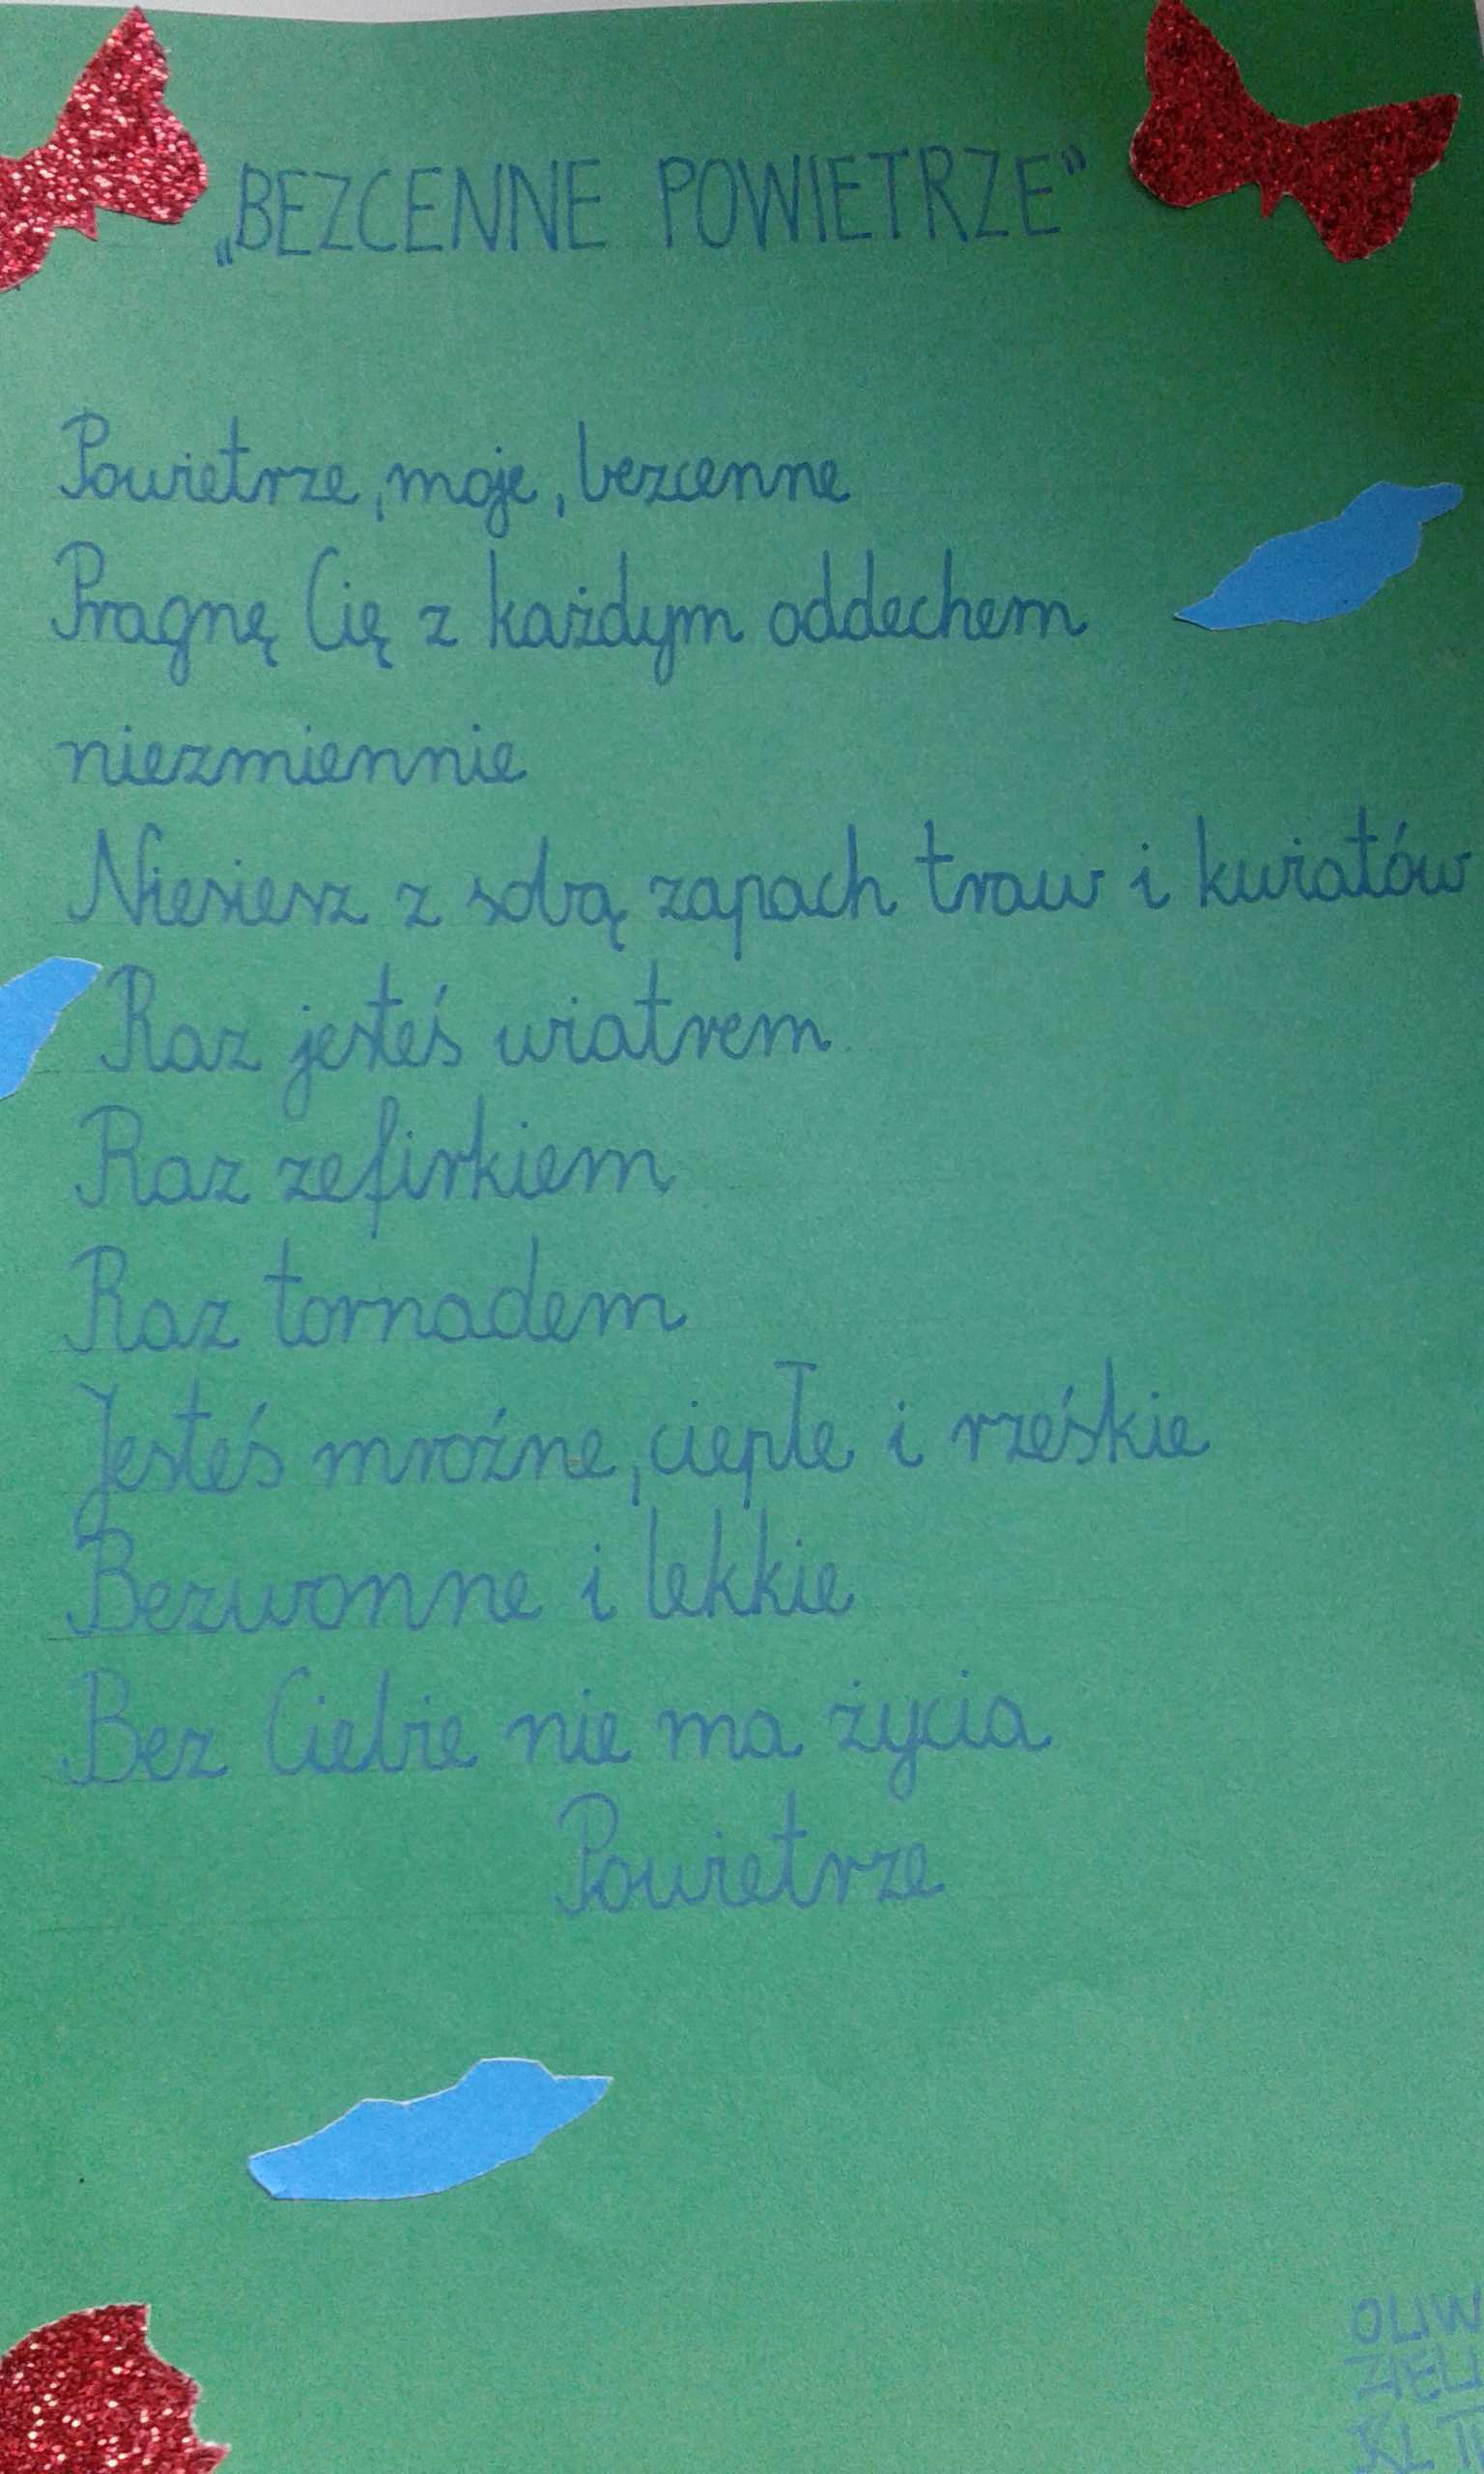 „BEZCENNE POWIETRZE”
Powietrze, moje, bezcenne
Pragnę Cię z każdym oddechem
niezmiennie
Niesiesz z sobą zapach traw i kwiatów
Raz jesteś wiatrem
Raz zefirkiem
Raz tornadem
Jesteś mroźne, ciepłe i rześkie
Bezwonne i lekkie
Bez Ciebie nie ma życia
Powietrze
OLIW
ZIELI
KL